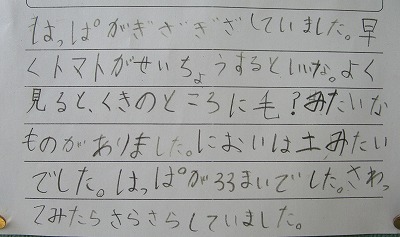 はっぱがぎざぎざしていました。早
くトマトがせいちょうするといいな。よく
見ると、くきのところに毛?みたいな
ものがありました。においは土みたい
でした。はっぱが33まいでした。さわっ
てみたらさらさらしていました。